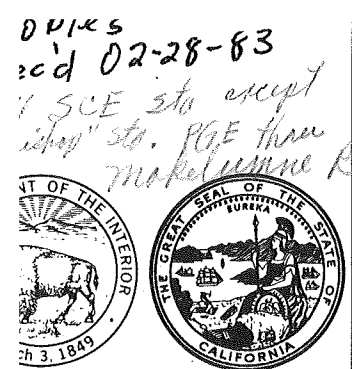 ec'd 02-28-83
SCE sta except
sta. PGE thru
Mokelumne R
NT OF THE INTERIOR
ch 3, 1849
THE GREAT SEAL OF THE STATE OF CALIFORNIA
EUREKA